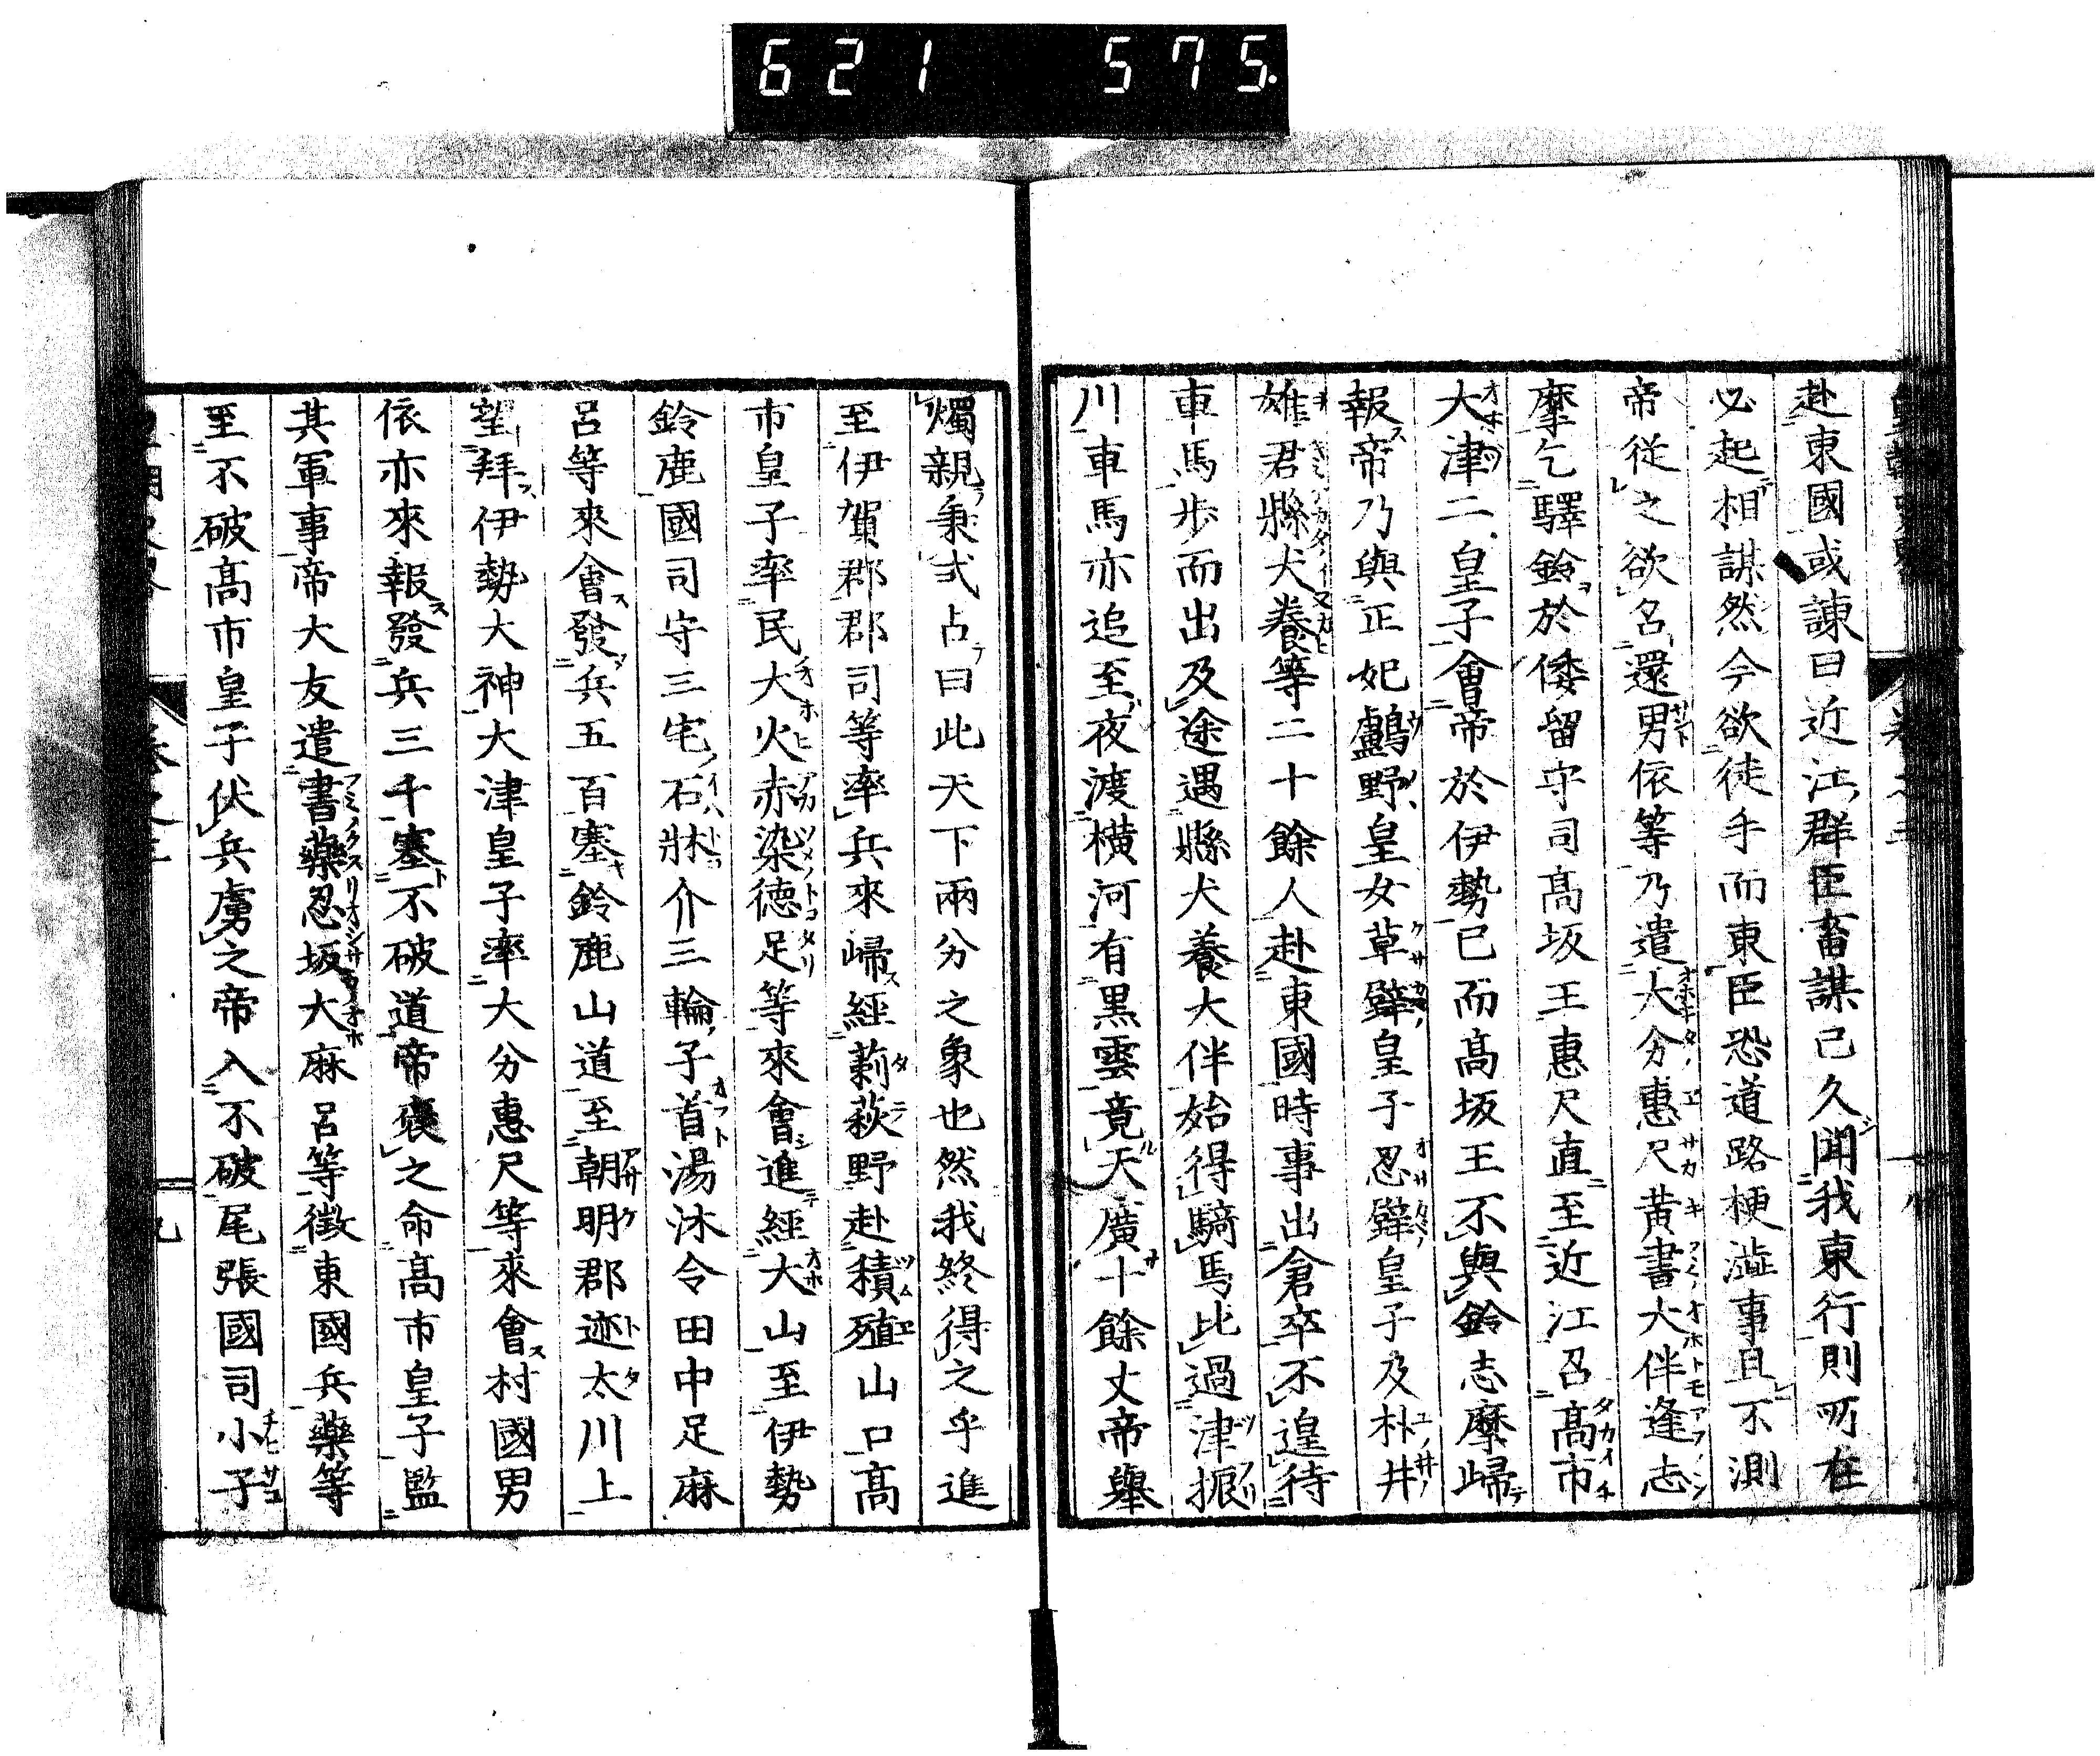 621 575.
赴東國或諫曰近江群臣畜謀已久聞我東行則所在
必起相謀然今欲徒手而東臣恐道路梗澁事且不測
帝從之欲召還男依等乃遣大分惠尺黃書大伴逢志
摩乞驛鈴於倭留守司髙坂王惠尺直至近江召髙市
大津二皇子會帝於伊勢已而髙坂王不與鈴志摩歸
報帝乃與正妃鸕野皇女草壁皇子忍壁皇子及朴井
雄君縣犬養等二十餘人赴東國時事出倉卒不遑待
車馬步而出及途遇縣犬養大伴始得騎馬比過津振
川車馬亦追至夜渡橫河有黑雲竟天廣十餘丈帝舉
燭親秉式占曰此天下兩分之象也然我終得之乎進
至伊賀郡郡司等率兵來歸經莿萩野赴積殖山口髙
市皇子率民大火赤染德足等來會進經大山至伊勢
鈴鹿國司守三宅石牀介三輪子首湯沐令田中足麻
呂等來會發兵五百塞鈴鹿山道至朝明郡迹太川上
望拜伊勢大神大津皇子率大分惠尺等來會村國男
依亦來報發兵三千塞不破道帝褒之命髙市皇子監
其軍事帝大友遣書藥忍坂大麻呂等徵東國兵藥等
至不破髙市皇子伏兵虜之帝入不破尾張國司小子